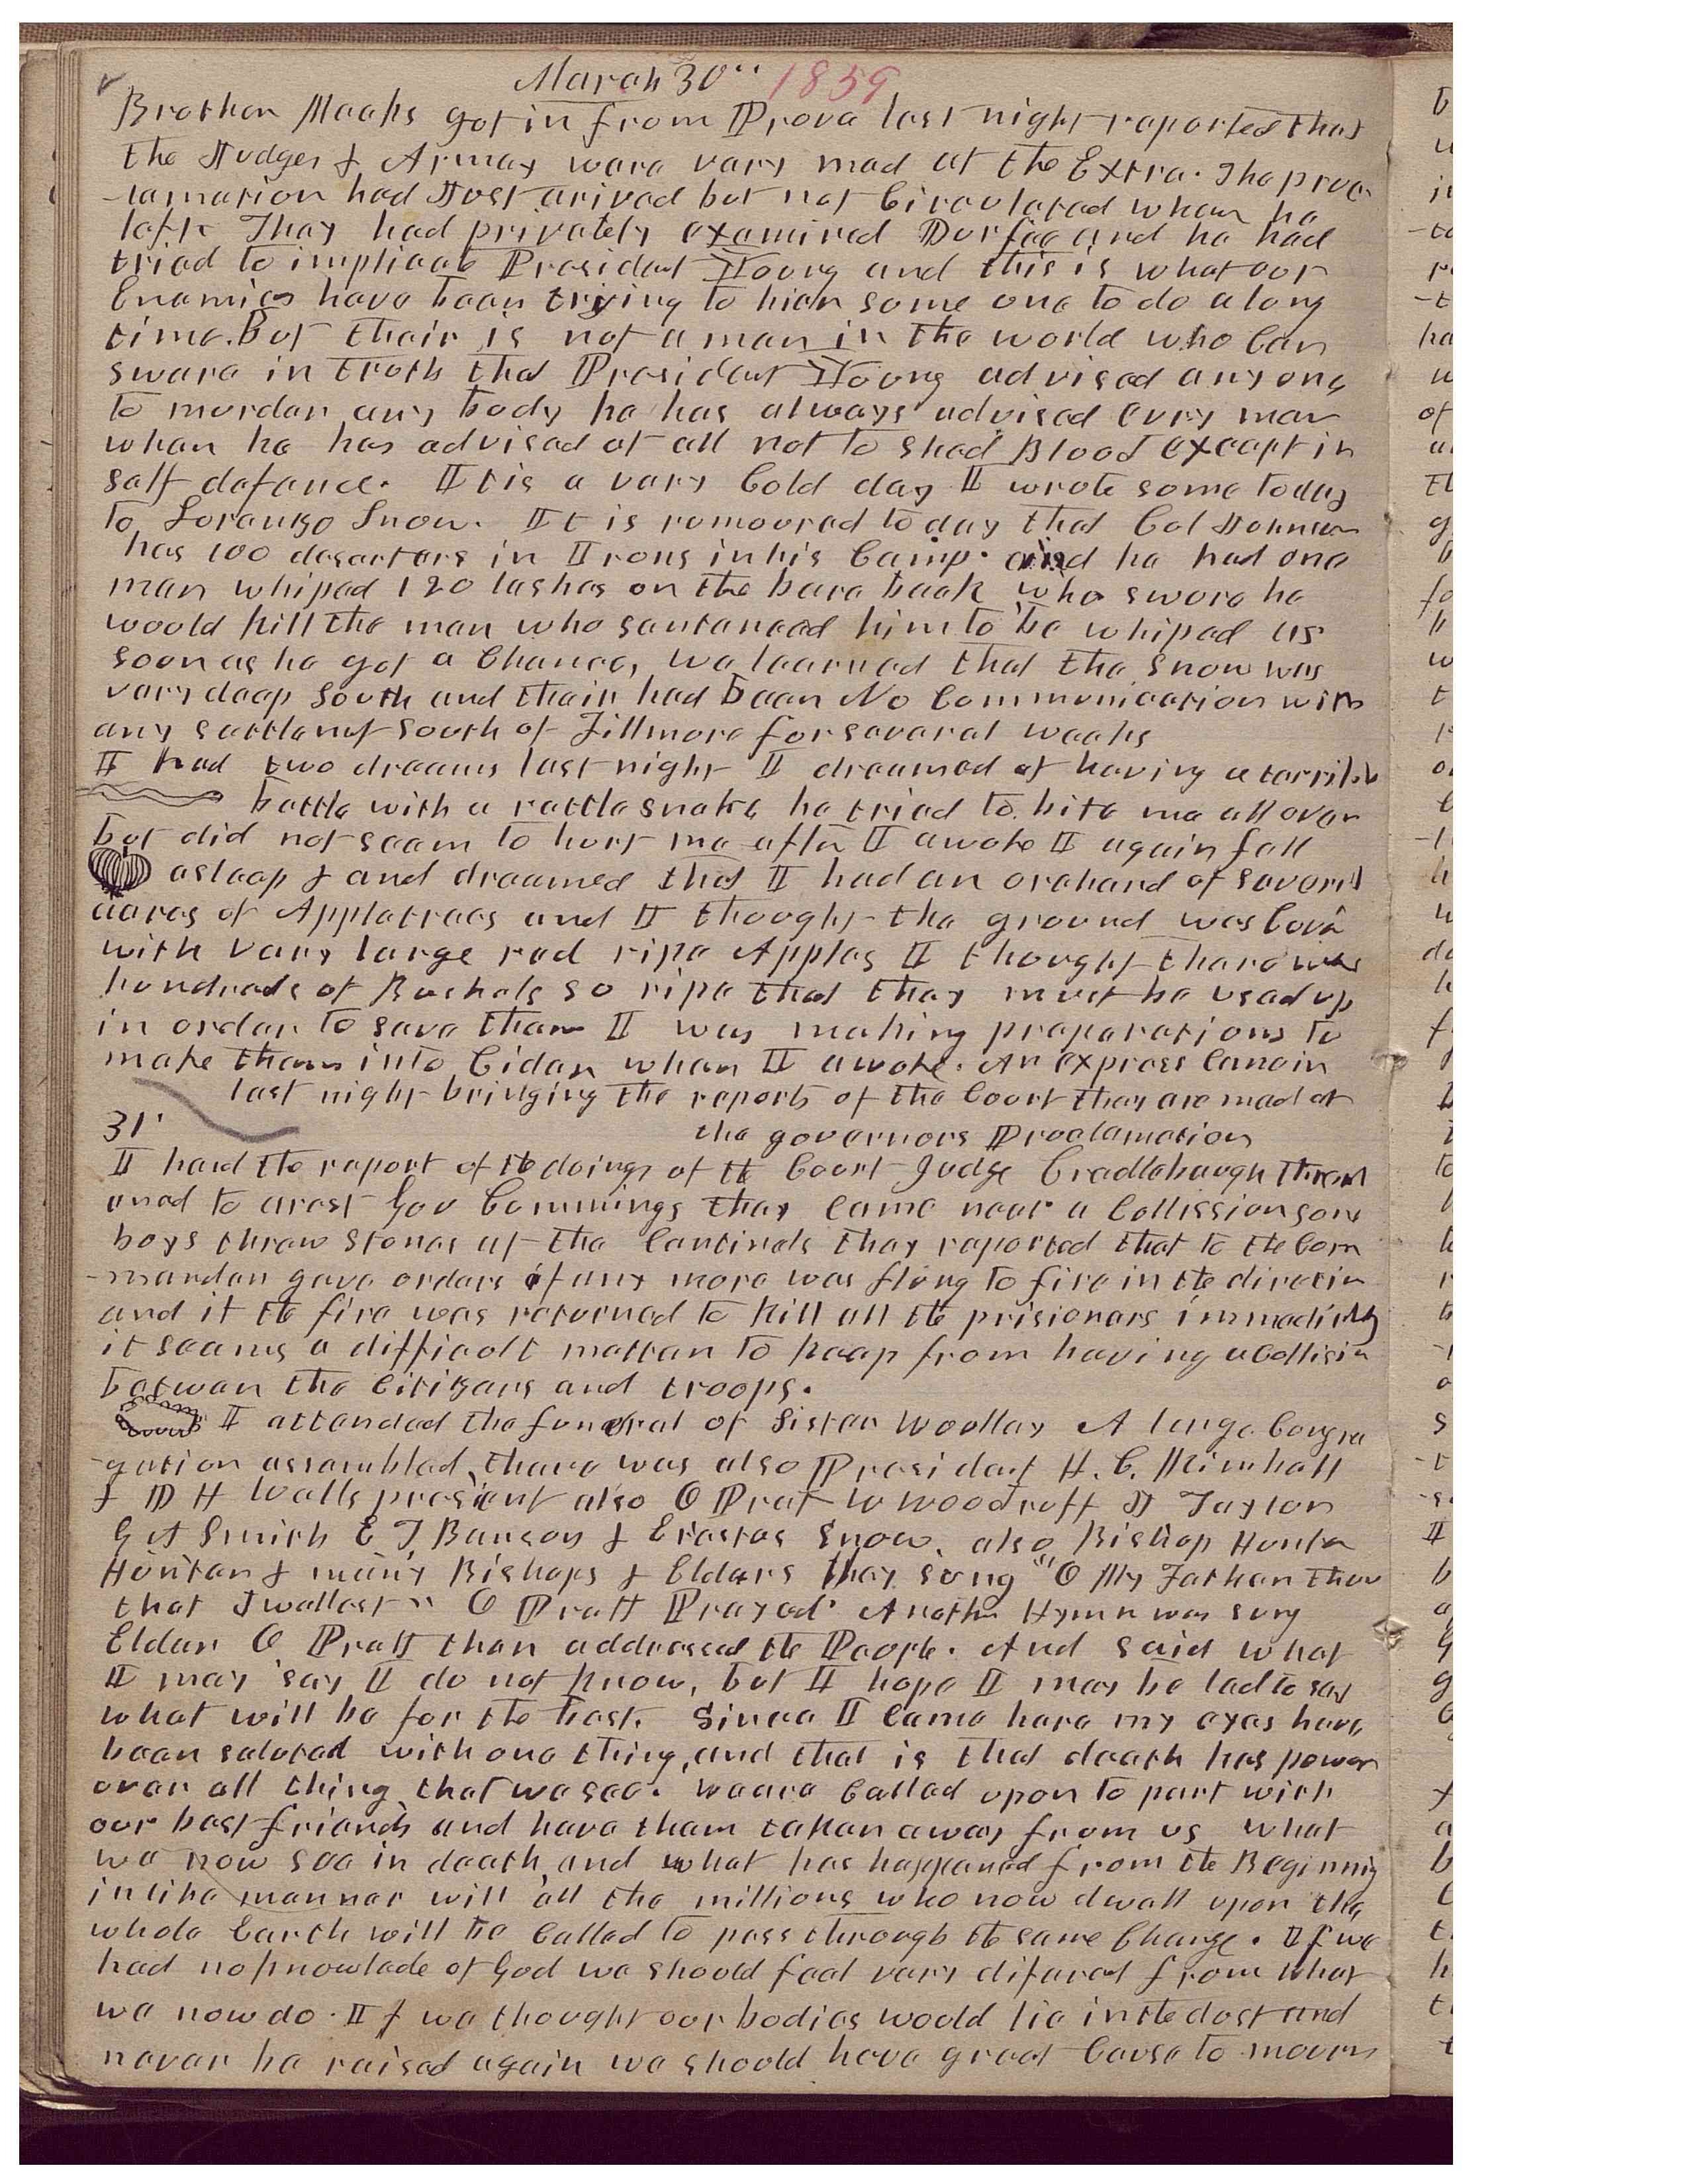 March 30th 1859
Brother Meeks got in from Provo last night reported that
the Judges & Armey were very mad at the Extra. The proc
-lamation had Just arived but not Circulated when he
left. They had privately examined Durfee and he had
tried to implicate President Young and this is what our
Enemies have been trying to hier some one to do a long
time. But their is not a man in the world who Can
sware in truth that President Young advised any one
to murder any body he has always advised evry man
when he has advised at all not to shed Blood except in
self defence. It is a very Cold day I wrote some to day
to Loranzo Snow. It is rumoured to day that Col Johnson
has 100 desarters in Irons in his Camp. and he had one
man whiped 120 lashes on the bare back who swore he
would kill the man who sentenced him to be whiped as
soon as he got a Chance, we learned that the snow was
very deep South and their had been No Communication with
any settlement South of Fillmore for several weeks
I had two dreams last night I dreamed of having a terrible
battle with a rattle snake he tried to bite me all over
but did not seem to hurt me after I awoke I again fell
asleep & and dreamed that I had an orchard of several
acres of Appletrees and I thought the ground was Cove
with very large red ripe Apples I thought there was
hundreds of Bushels so ripe that they must be used up
in order to save them I was making preparations to
make them into Cider when I awoke. An express Came in
last night bringing the reports of the Court they are mad at
the governors Proclamation
31
I hard the report of the doings of the Court Judge Cradlebaugh threat
ened to arest Gov Cummings they came near a Collission some
boys threw stones at the Centinels they reported that to the Com
-mander gave orders if any more was flung to fire in the direction
and if the fire was returned to kill all the prisioners immediately
it seems a difficult matter to keep from having a Collision
betwen the Citizens and troops.
I attended the funeral of Sister Woolley A large Congre
-gation assembled, there was also President H. C. Kimball
& D H Wells present also O Prat W Woodruff J Taylor
G A Smith E T Benson & Erastus Snow. also Bishop Hunter
Hunter & many Bishops & Elders they sung "O My Father thou
that dwellest" O Pratt Prayed. Another Hymn was sung
Elder O. Pratt then addressed the People. And said what
I may say I do not know, but I hope I may be led to say
what will be for the best. Since I came here my eyes have
been saluted with one thing, and that is that death has power
over all thing that we see. we are Called upon to part with
our best friends and have them taken away from us what
we now see in death and what has happened from the Beginning
in like manner will all the millions who now dwell upon the
whole Earth will be Called to pass through the same Change. If we
had no knowlede of God we should feel very diferent from what
we now do. If we thought our bodies would lie in the dust and
never be raised again we should have great Cause to mourn